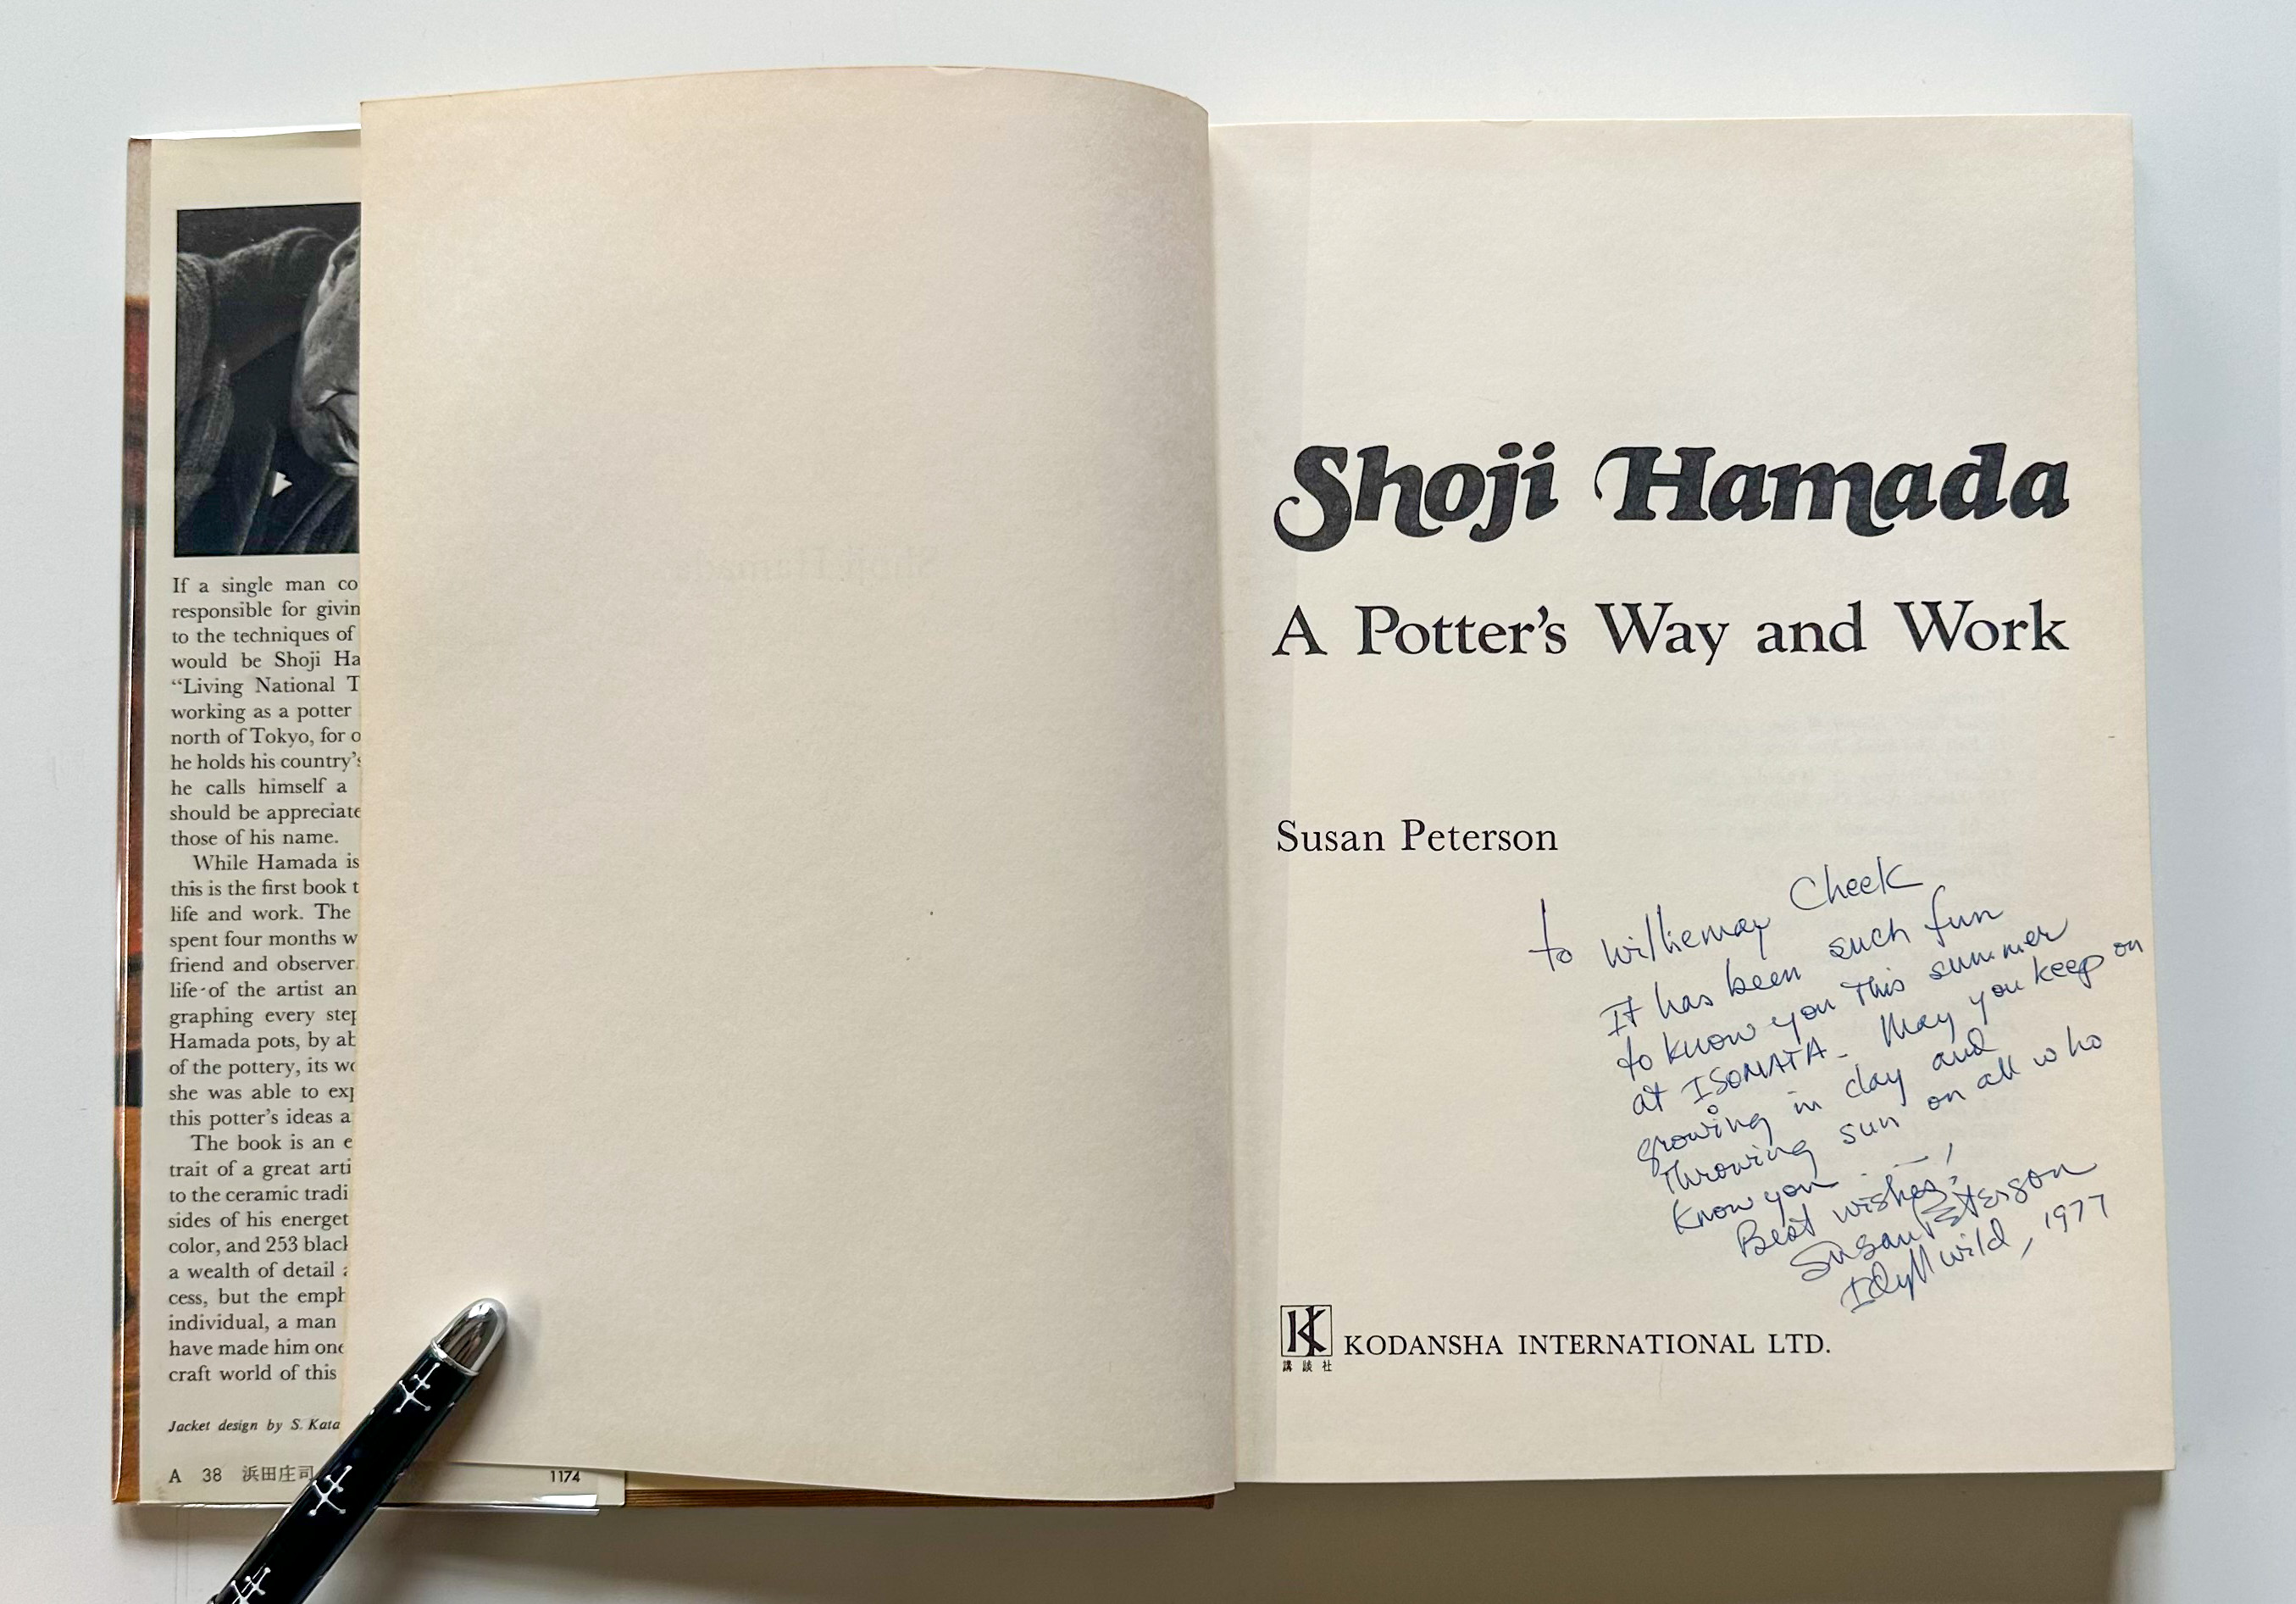 If a single man co
responsible for givin
to the techniques of
would be Shoji Ha
“Living National T
working as a potter
north of Tokyo, for o
he holds his country’s
he calls himself a
should be appreciate
those of his name.
While Hamada is
this is the first book t
life and work. The
spent four months w
friend and observer
life of the artist an
graphing every step
Hamada pots, by ab
of the pottery, its wo
she was able to exp
this potter’s ideas a
The book is an e
trait of a great arti
to the ceramic tradi
sides of his energet
color, and 253 black
a wealth of detail a
cess, but the emph
individual, a man
have made him one
craft world of this
Jacket design by S. Kata
A 38 浜田庄司 1174
Shoji Hamada
A Potter’s Way and Work
Susan Peterson
to Williemay Cheek
It has been such fun
to know you this summer
at ISOMATA - May you keep on
growing in clay and
throwing sun on all who
know you
Best wishes!
Susan Peterson
Idyllwild, 1977
KODANSHA INTERNATIONAL LTD.
講談社